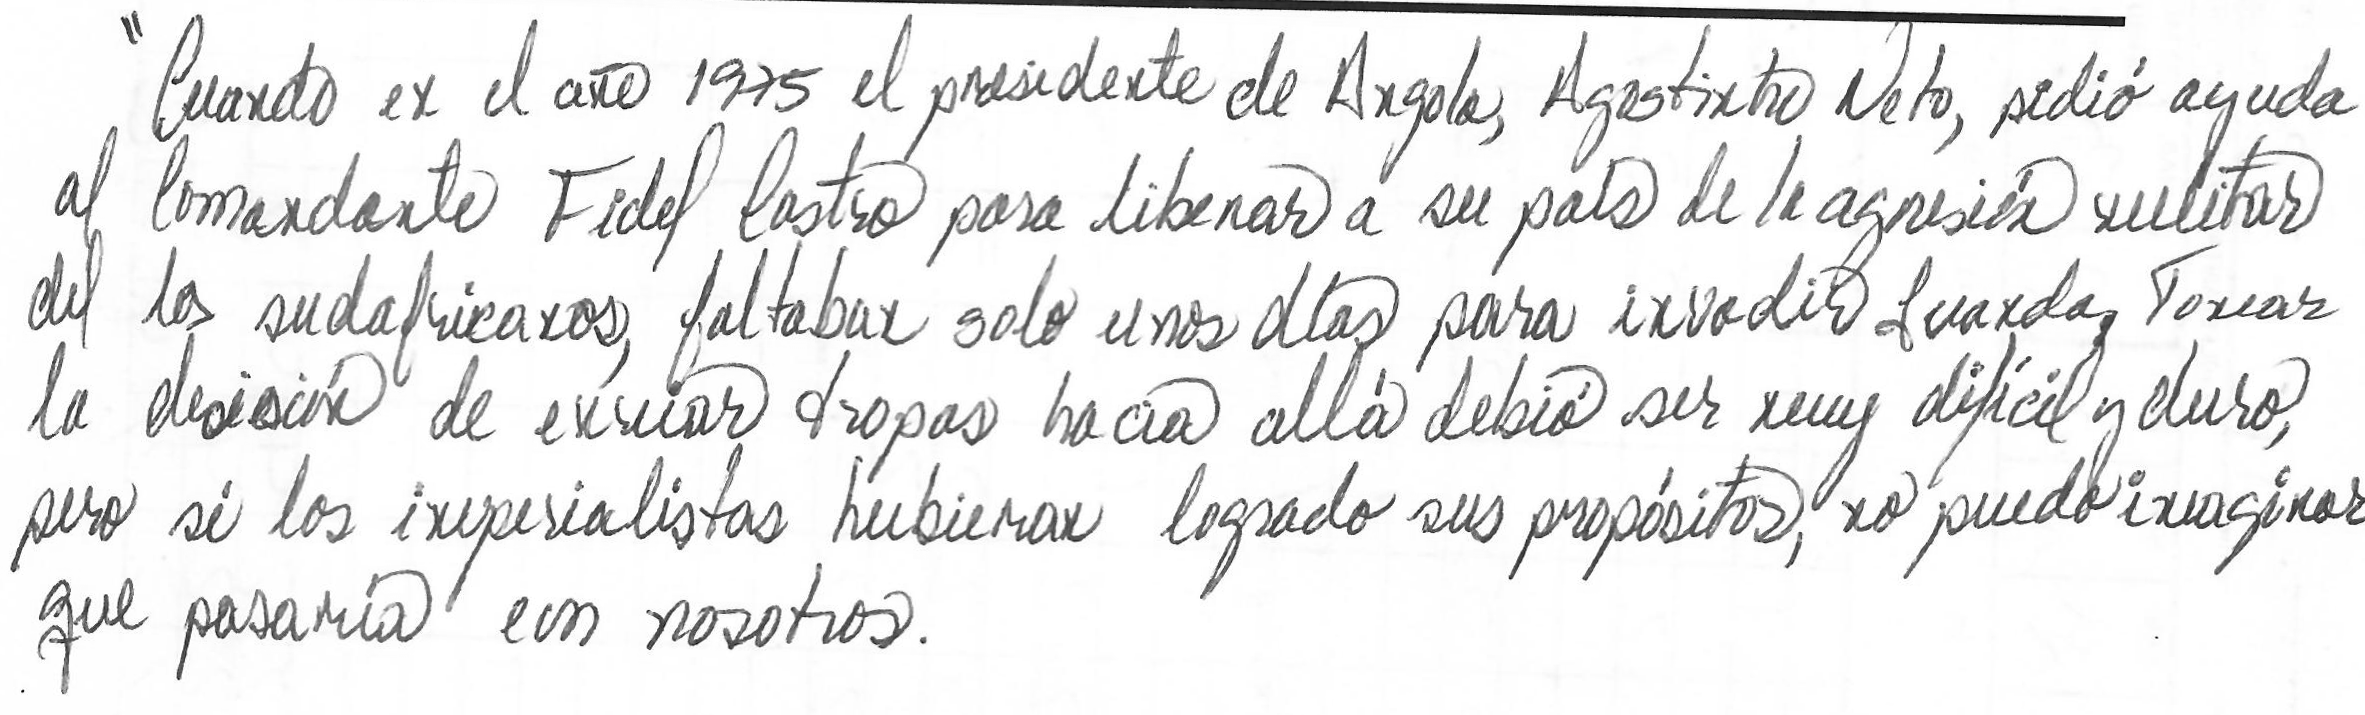 "Cuando en el año 1975 el presidente de Angola, Agostinho Neto, pidió ayuda
al Comandante Fidel Castro para liberar a su país de la agresión militar
del los sudafricanos, faltaban solo unos días para invadir Luanda, Tomar
la decisión de enviar tropas hacia allá debió ser muy difícil y duro,
pero si los imperialistas hubieran logrado sus propósitos, no puedo imaginar
que pasaría con nosotros.